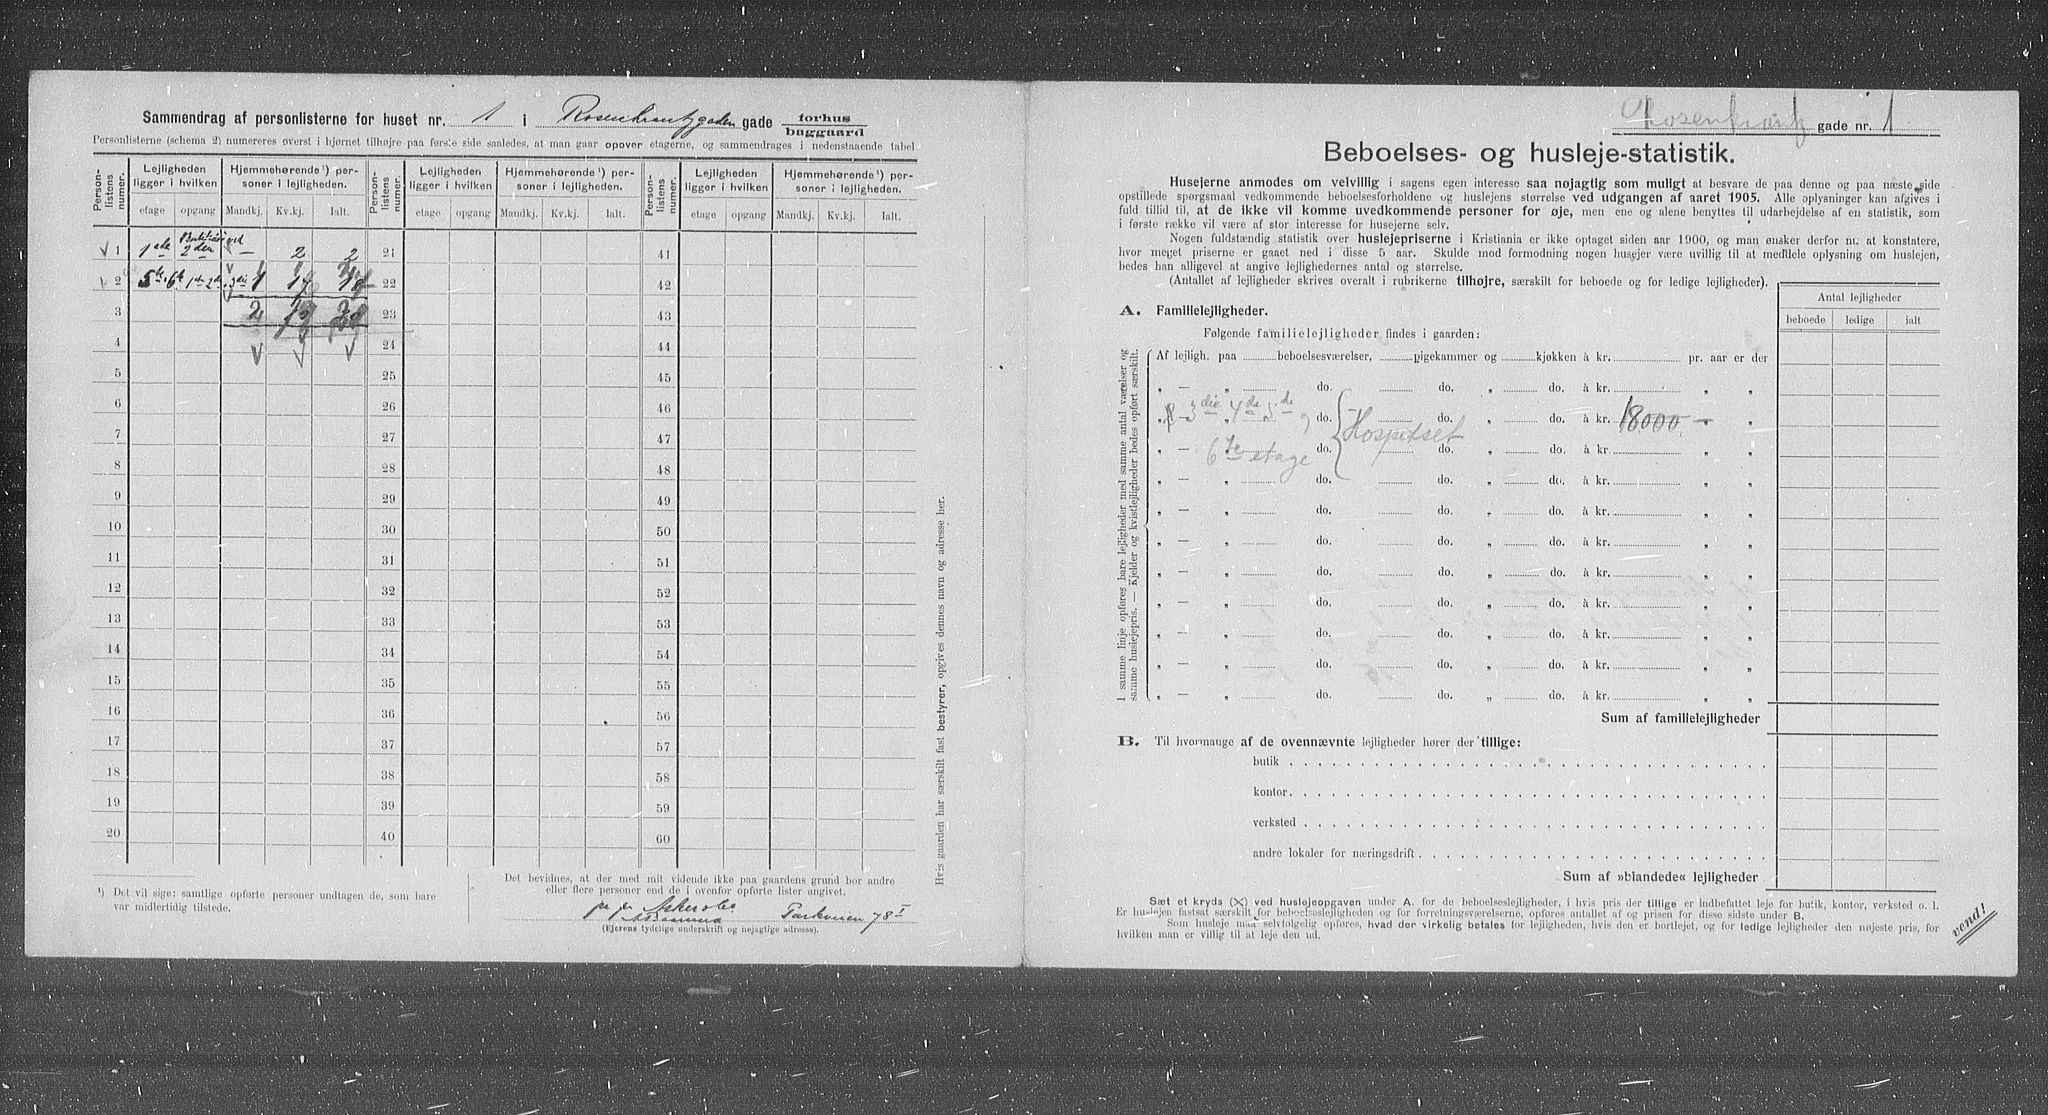 Sammendrag af personlisterne for huset nr. 1 i Rosenkrantzgaden gade forhus baggaard
Personlisterne (schema 2) numereres øverst i hjørnet tilhøjre paa første side saaledes, at man gaar opover etagerne, og sammendrages i nedenstaaende tabel
Person-listens numer. Lejligheden ligger i hvilken Hjemmehørende ¹) personer i lejligheden. Person-listens numer. Lejligheden ligger i hvilken Hjemmehørende ¹) personer i lejligheden. Person-listens numer. Lejligheden ligger i hvilken Hjemmehørende ¹) personer i lejligheden.
etage opgang Mandkj. Kv.kj. Ialt. etage opgang Mandkj. Kv.kj. Ialt. etage opgang Mandkj. Kv.kj. Ialt.
1 1ste 2den — 2 2 21 41
2 5te 6te 22 42
3 23 43
4 24 44
5 25 45
6 26 46
7 27 47
8 28 48
9 29 49
10 30 50
11 31 51
12 32 52
13 33 53
14 34 54
15 35 55
16 36 56
17 37 57
18 38 58
19 39 59
20 40 60
¹) Det vil sige: samtlige opførte personer undtagen de, som bare
var midlertidig tilstede.
Det bevidnes, at der med mit vidende ikke paa gaardens grund bor andre
eller flere personer end de i ovenfor opførte lister angivet.
Parkveien 78 I
(Ejerens tydelige underskrift og nøjagtige adresse).
Hvis gaarden har særskilt fast bestyrer, opgives dennes navn og adresse her.
Rosenkrantz gade nr. 1
Beboelses- og husleje-statistik.
Husejerne anmodes om velvillig i sagens egen interesse saa nøjagtig som muligt at besvare de paa denne og paa næste side
opstillede spørgsmaal vedkommende beboelsesforholdene og huslejens størrelse ved udgangen af aaret 1905. Alle oplysninger kan afgives i
fuld tillid til, at de ikke vil komme uvedkommende personer for øje, men ene og alene benyttes til udarbejdelse af en statistik, som
i første række vil være af stor interesse for husejerne selv.
Nogen fuldstændig statistik over huslejepriserne i Kristiania er ikke optaget siden aar 1900, og man ønsker derfor nu at konstatere,
hvor meget priserne er gaaet ned i disse 5 aar. Skulde mod formodning nogen husejer være uvillig til at meddele oplysning om huslejen,
bedes han alligevel at angive lejlighedernes antal og størrelse.
(Antallet af lejligheder skrives overalt i rubrikerne tilhøjre, særskilt for beboede og for ledige lejligheder).
Antal lejligheder
beboede ledige ialt
A. Familielejligheder.
Følgende familielejligheder findes i gaarden:
Af lejligh. paa beboelsesværelser, pigekammer og kjøkken à kr. pr. aar er der
„ — „ do. do. „ do. à kr. „ „
„ — 3die 4de 5de, do. do. „ do. à kr. 18000 — „
„ — 6te etage do. Hospitset do. do. à kr. „ „
„ — „ do. do. „ do. à kr. „ „
„ — „ do. do. „ do. à kr. „ „
„ — „ do. do. „ do. à kr. „ „
„ — „ do. do. „ do. à kr. „ „
„ — „ do. do. „ do. à kr. „ „
„ — „ do. do. „ do. à kr. „ „
„ — „ do. do. „ do. à kr. „ „
„ — „ do. do. „ do. à kr. „ „
I samme linje opføres bare lejligheder med samme antal værelser og
samme huslejepris. — Kjelder og kvistlejligheder bedes opført særskilt.
Sum af familielejligheder
B. Til hvormange af de ovennævnte lejligheder hører der tillige:
butik
kontor
verksted
andre lokaler for næringsdrift
Sum af »blandede« lejligheder
Sæt et kryds (X) ved huslejeopgaven under A. for de beboelseslejligheder, i hvis pris der tillige er indbefattet leje for butik, kontor, verksted o. l.
Er huslejen fastsat særskilt for beboelseslejligheden og for forretningsværelserne, opføres antallet af og prisen for disse sidste under B.
Som husleje maa selvfølgelig opføres, hvad der virkelig betales for lejligheden, hvis den er bortlejet, og for ledige lejligheder den nøjeste pris, for
hvilken man er villig til at leje den ud.
vend!